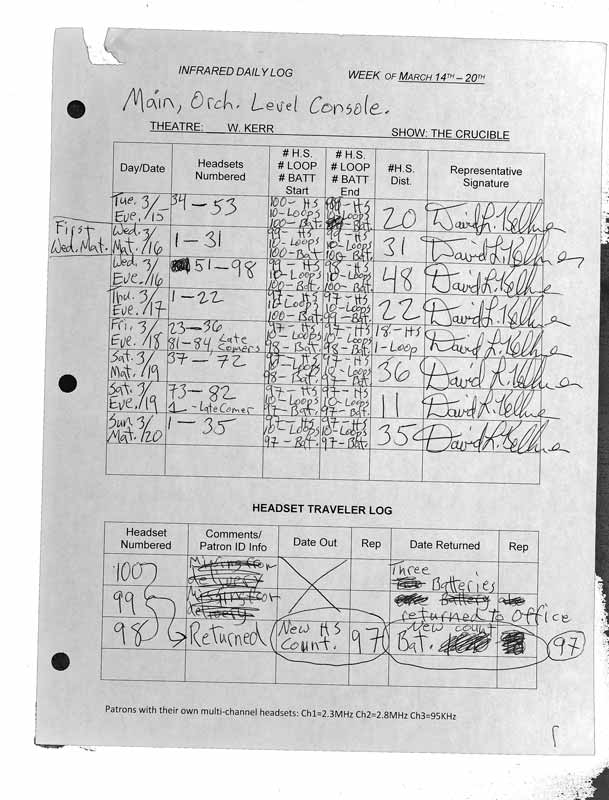 INFRARED DAILY LOG WEEK OF MARCH 14TH – 20TH
Main, Orch. Level Console.
THEATRE: W. KERR SHOW: THE CRUCIBLE
Day/Date Headsets Numbered # H.S. # LOOP # BATT Start # H.S. # LOOP # BATT End #H.S. Dist. Representative Signature
Tue. 3/ Eve. /15 34 – 53 100 – HS 10 – Loops 100 – Bat. – HS 10 – Loops – Bat. 20 David L. Kellme
First Wed. Mat. Wed. 3/ Mat. /16 1 – 31 99 – HS 10 – Loops 100 – Bat. 99 – HS 10 – Loops 100 – Bat. 31 David L. Kellme
Wed. 3/ Eve. /16 51 – 98 99 – HS 10 – Loops 100 – Bat. 98 – HS 10 – Loops 100 – Bat. 48 David L. Kellme
Thu. 3/ Eve. /17 1 – 22 97 – HS 10 – Loops 100 – Bat. 97 – HS 10 – Loops 99 – Bat. 22 David L. Kellme
Fri. 3/ Eve. /18 23 – 36 81 – 84, Late Comers 97 – HS 10 – Loops 98 – Bat. 97 – HS 10 – Loops 98 – Bat. 18 – HS 1 – Loop David L. Kellme
Sat. 3/ Mat. /19 37 – 72 97 – HS 10 – Loops 98 – Bat. 97 – HS 10 – Loops 97 – Bat. 36 David L. Kellme
Sat. 3/ Eve. /19 73 – 82 1 – Late Comer 97 – HS 10 – Loops 97 – Bat. 97 – HS 10 – Loops 97 – Bat. 11 David L. Kellme
Sun. 3/ Mat. /20 1 – 35 97 – HS 10 – Loops 97 – Bat. 97 – HS 10 – Loops 97 – Bat. 35 David L. Kellme
HEADSET TRAVELER LOG
Headset Numbered Comments/ Patron ID Info Date Out Rep Date Returned Rep
100 Missing from delivery Three Batteries
99 Missing from delivery Battery returned to Office
98 Returned New HS Count. 97 New count Bat. 97
Patrons with their own multi-channel headsets: Ch1=2.3MHz Ch2=2.8MHz Ch3=95KHz